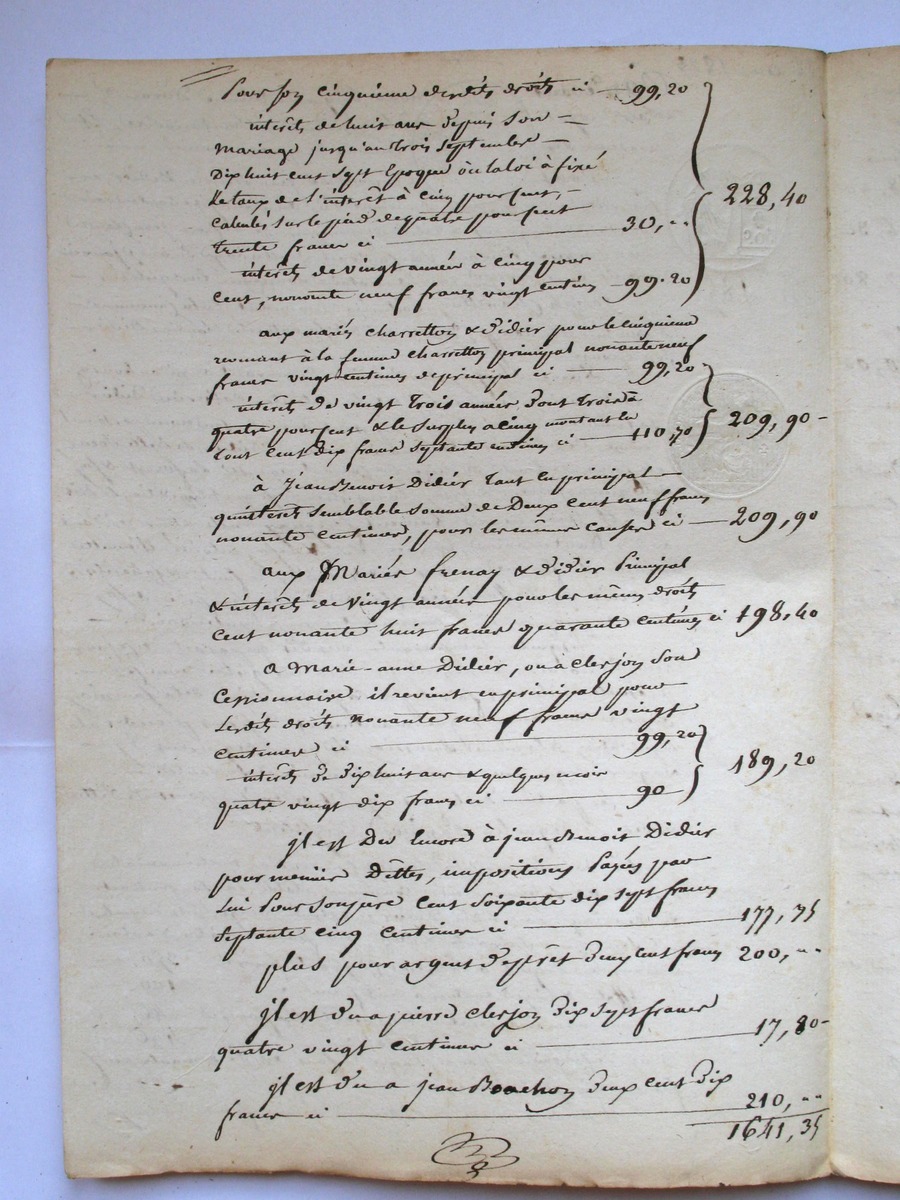 pour son cinquieme desdits droits ci — 99,20
intérêts de huit ans depuis son =
mariage jusqu'au trois septembre —
dix huit cent sept époque où la loi à fixé
le taux de l'intérêt à cinq pour cent, —
calculés sur le pied de quatre pour cent
trente francs ci — 30, "
228,40
intérêts de vingt année à cinq pour
cent, nonante neuf francs vingt centimes — 99.20
aux mariés charretton & didier pour le cinquieme
revenant à la femme charretton principal nonante neuf
francs vingt centimes de principal ci — 99,20
intérêts de vingt trois années dont trois à
quatre pour cent & le surplus a cinq montant le
tout cent dix francs septante centimes ci — 110,70
209,90 —
à Jean Benoit Didier tant en principal —
qu'intérêts semblable somme de deux cent neuf francs
nonante centimes, pour les mêmes causes ci — 209,90
aux Mariés frenay & didier principal
& intérêts de vingt année pour les mêmes droits
cent nonante huit francs quarante centimes ci 198,40
a Marie-anne Didier, ou a clerjon son
cessionnaire il revient en principal pour
lesdits droits nonante neuf francs vingt
centimes ci — 99,20
intérêts de dix huit ans & quelques mois
quatre vingt dix francs ci — 90
189,20
il est du encore à jean Benoit Didier
pour menues dettes, impositions payés par
lui pour son père cent soixante dix sept francs
septante cinq centimes ci — 177,75
plus pour argent de prêt deux cent francs 200, "
il est du a pierre clerjon dix sept francs
quatre vingt centimes ci — 17,80 —
il est du a jean Bouchon deux cent dix
francs ci — 210, "
1641,35